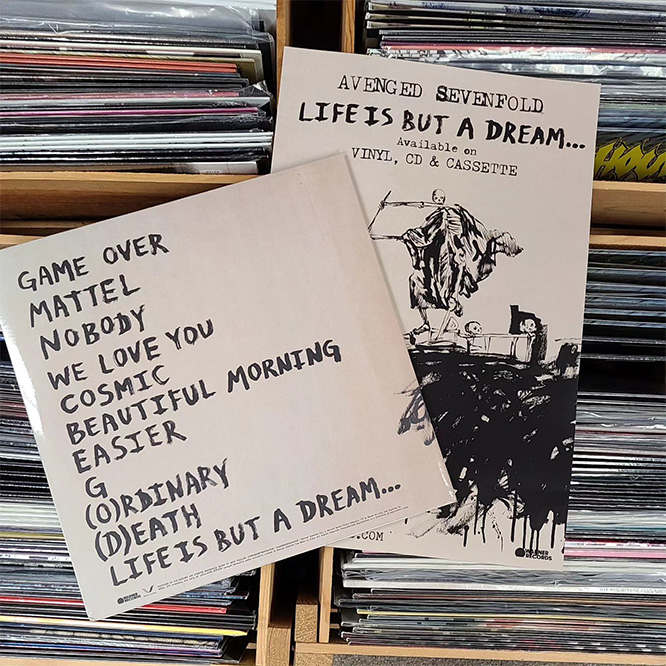 AVENGED SEVENFOLD
LIFE IS BUT A DREAM...
Available on
VINYL, CD & CASSETTE
GAME OVER
MATTEL
NOBODY
WE LOVE YOU
COSMIC
BEAUTIFUL MORNING
EASIER
G
(O)RDINARY
(D)EATH
LIFE IS BUT A DREAM...
.COM
WARNER
RECORDS
WARNER
RECORDS